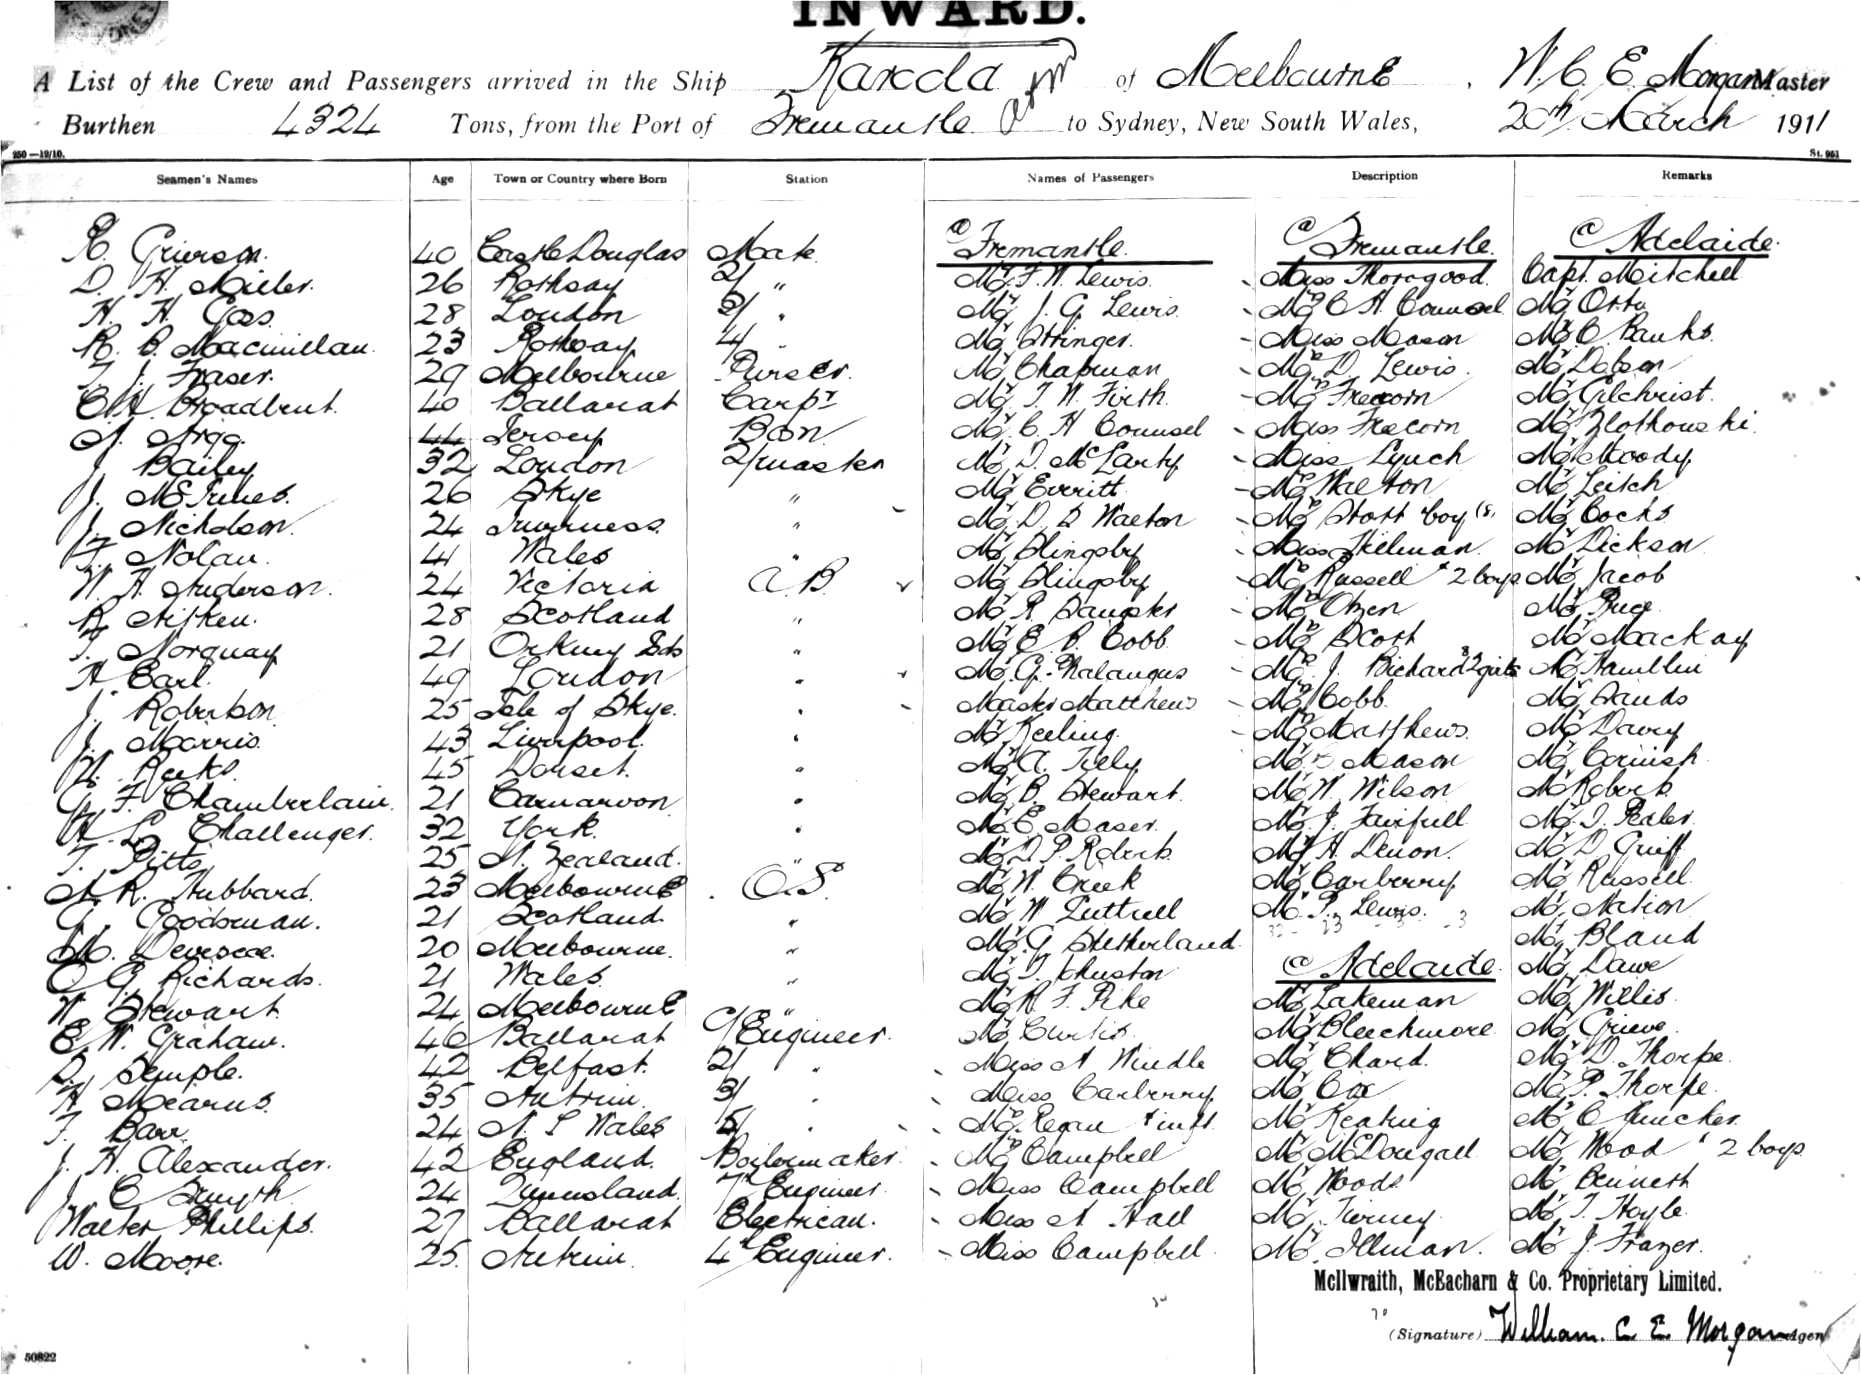 INWARD.
A List of the Crew and Passengers arrived in the Ship Karoola of Melbourne, W. C. E. Morgan Master
Burthen 4324 Tons, from the Port of Fremantle to Sydney, New South Wales, 20th March 1911
250—12/10. St. 961
Seamen's Names Age Town or Country where Born Station Names of Passengers Description Remarks
R. Grierson. 40 Castle Douglas Mate Fremantle. Fremantle. Adelaide.
D. H. Miller. 26 Rothsay 2/ " Mr F. W. Lewis. Miss Thorogood. Capt. Mitchell
H. H. Goss. 28 London 3/ " Mr J. G. Lewis. Mrs C H Counsel Mr Otto
R. B. Macmillan. 23 Rothsay 4/ " Mr Ottinger. Miss Mason Mr C. Banks.
T. J. Fraser. 29 Melbourne Purser. Mr Chapman Mrs D. Lewis. Mr Dobson
C. H. Broadbent. 40 Ballarat Carpr Mr T. W. Firth. Mrs Freecorn Mr Gilchrist.
44 Jersey Bosn Mr C. H Counsel Miss Freecorn Mr Zlothowski.
J. Bailey 32 London 2/master Mr D. McLarty Miss Lynch Mr Moody
J. McInnes. 26 Skye " Mr Everitt Mrs Walton Mr Leitch
J. Nicholson. 24 Inverness. " Mr D. S Walton Mrs Stott boy (8) Mr Cocks
T. Nolan. 41 Wales " Mr Slingsby Miss Hilman. Mr Dickson
W. H. Anderson. 24 Victoria A.B. Mr Slingsby Mrs Russell & 2 boys Mr Jacob
R. Aitken. 28 Scotland " Mr R. Mrs Olsen Mr
T. Norquay 21 Orkney Isds " Mr E. B. Cobb. Mrs Scott Mr Mackay
H Earl. 49 London " Mr G. Malangus Mrs J. Richard & 2 girls Mr Hamblin
J. Robertson 25 Isle of Skye. " Master Matthews Mrs Cobb. Mr Sands
J. Morris. 43 Liverpool. " Mr Keeling. Mrs Matthews. Mr Davey
Reeks. 45 Dorset. " Mr A. Tilly Mr Mason Mr Cornish.
G. F. Chamberlain. 21 Carnarvon " Mr B. Stewart. Mr W. Wilson Mr Roberts
H. L. Challenger. 32 York. " Mr C. Maser. Mr J. Fairfull Mr I. Pedler.
T. Pitts 25 N. Zealand. " Mr D. P. Roberts. Mr H. Denon. Mr D. Griff
A. R. Hubbard. 23 Melbourne O.S. Mr W. Creek Mr Carberry Mr Russell.
G. Goodsman. 21 Scotland " Mr W Luttrell Mr P. Lewis. Mr Nation
M. 20 Melbourne. " Mr G Sutherland. Mr Bland
O. G. Richards. 21 Wales. " Mr T. Johnston Adelaide. Mr Dawe
W. Stewart. 24 Melbourne " Mr R. F. Pike Mr Lakeman Mr Willis.
E. W. Graham. 46 Ballarat C/Engineer. Mr Curtis. Mr Bleechmore Mr Grieve.
D. Semple. 42 Belfast. 2/ " Miss A Windle Mr Chard. Mr D. Thorpe.
H Mearns. 35 Antrim. 3/ " Miss Carberry Mr Cox Mr P. Thorpe.
F. Barr. 24 N. S Wales 5/ " Mrs Regan & inft. Mr Keating Mr C
J. H. Alexander. 42 England. Boilermaker. Mrs Campbell Mr McDougall Mr Wood & 2 boys
J. C Smyth 24 Queensland. 7th Engineer Miss Campbell Mr Woods Mr Bennett
Walter Phillips. 27 Ballarat Electrican. Miss A Hall Mr Tierney. Mr T. Hoyle.
W. Moore. 25. Antrim. 4th Engineer. Miss Campbell. Mr Illman. Mr J. Frazer.
McIlwraith, McEacharn & Co. Proprietary Limited.
(Signature) William. C. E. Morgan Agent
50822